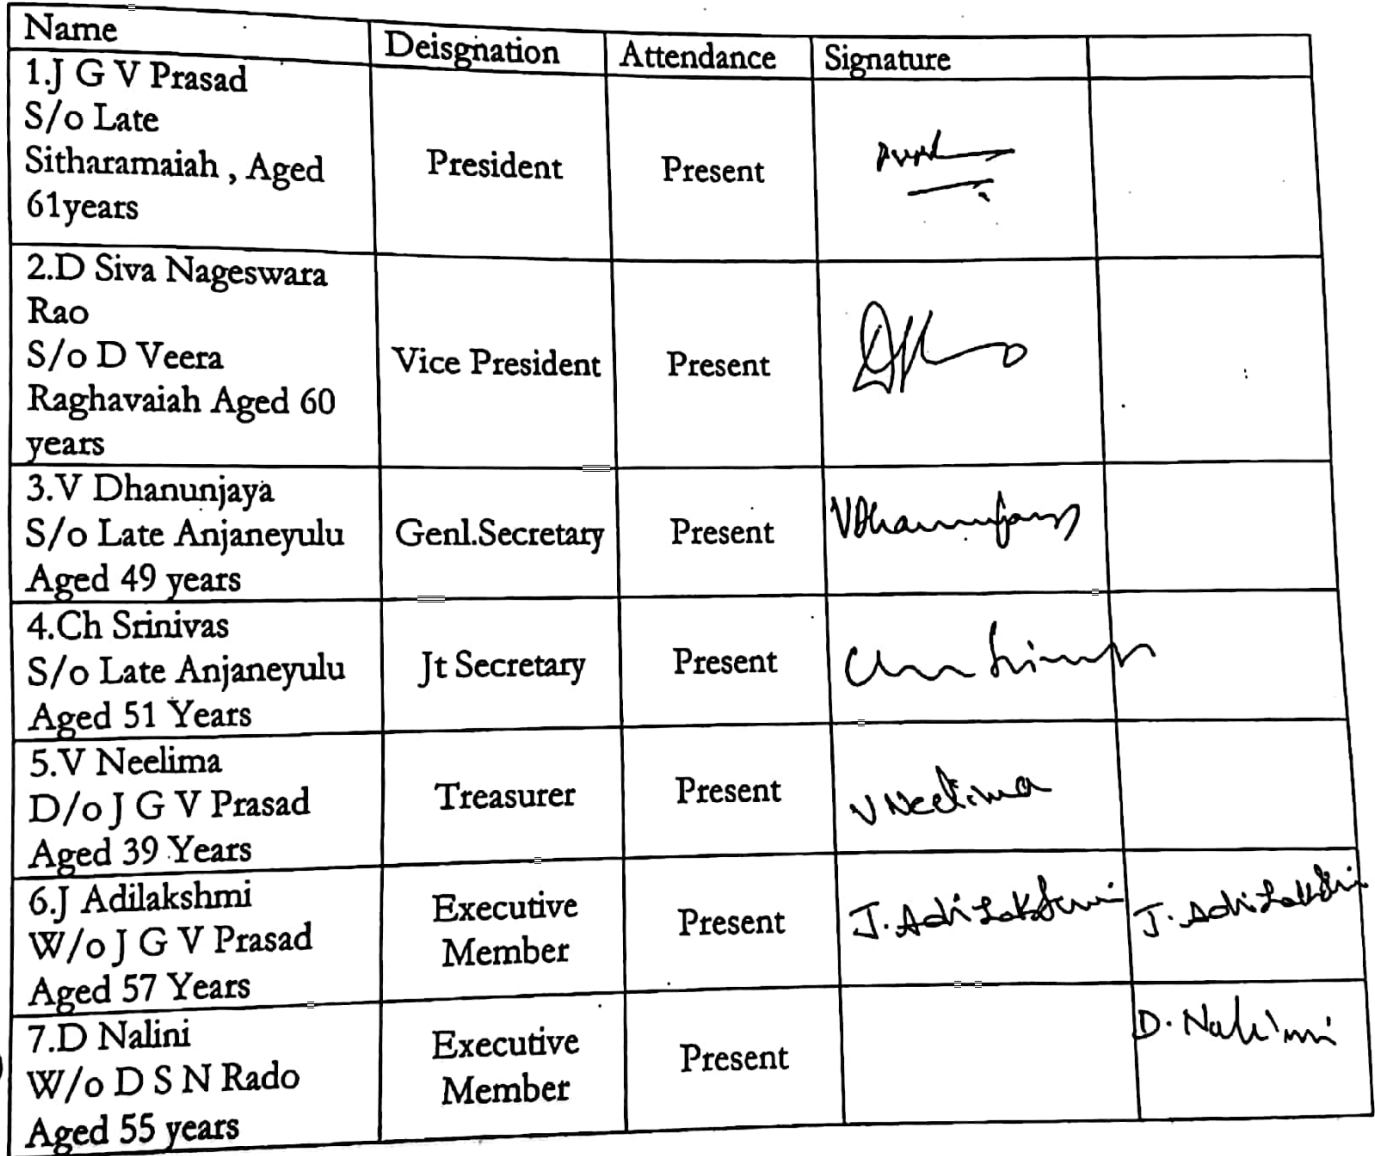 Name Deisgnation Attendance Signature
1.J G V Prasad
S/o Late
Sitharamaiah , Aged
61years
President Present
2.D Siva Nageswara
Rao
S/o D Veera
Raghavaiah Aged 60
years
Vice President Present
3.V Dhanunjaya
S/o Late Anjaneyulu
Aged 49 years
Genl.Secretary Present VDhanunjaya
4.Ch Srinivas
S/o Late Anjaneyulu
Aged 51 Years
Jt Secretary Present
5.V Neelima
D/o J G V Prasad
Aged 39 Years
Treasurer Present V Neelima
6.J Adilakshmi
W/o J G V Prasad
Aged 57 Years
Executive
Member
Present J. Adilakshmi J. Adilakshmi
7.D Nalini
W/o D S N Rado
Aged 55 years
Executive
Member
Present D. Nalini